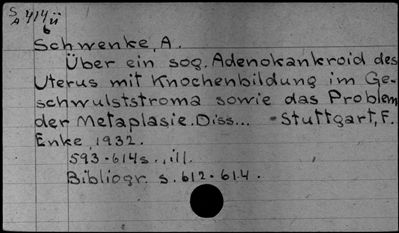 S 414ü
A 6
Schwenke, A.
Über ein sog. Adenokankroid des
Uterus mit Knochenbildung im Ge-
schwulststroma sowie das Problem
der Metaplasie. Diss... -Stuttgart, F.
Enke, 1932.
593-614s., ill.
Bibliogr. s. 612-614.